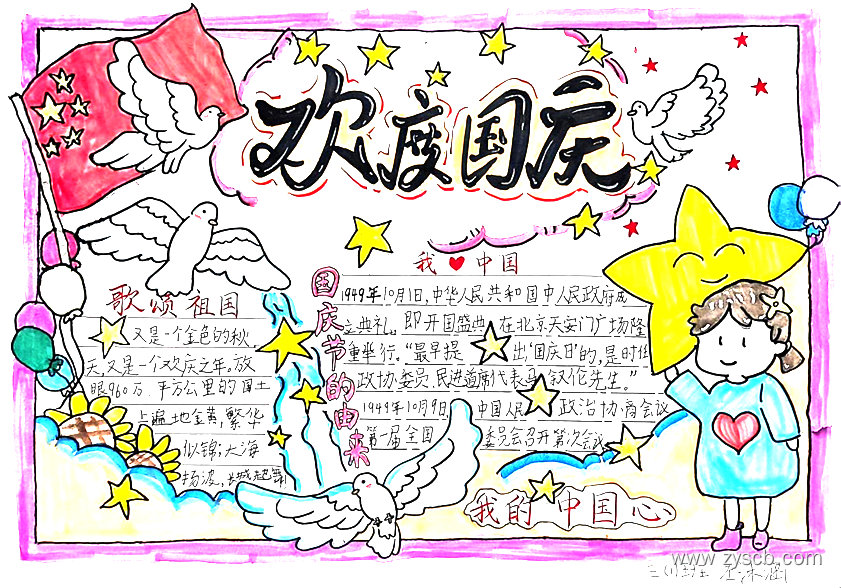 欢度国庆
歌颂祖国
又是一个金色的秋
天,又是一个欢庆之年。放
眼960万 平方公里的国土
上遍地金黄,繁华
似锦;大海
扬波,长城起舞
国庆节的由来
我 中国
1949年10月1日,中华人民共和国中人民政府成
立典礼。即开国盛典 在北京天安门广场隆
重举行。“最早提 出'国庆日'的,是时任
政协委员.民进首席代表马叙伦先生。”
1949年10月9日, 中国人民 政治协商会议
第一届全国 委员会召开第次会议
我的 中国心
www.zyscb.com